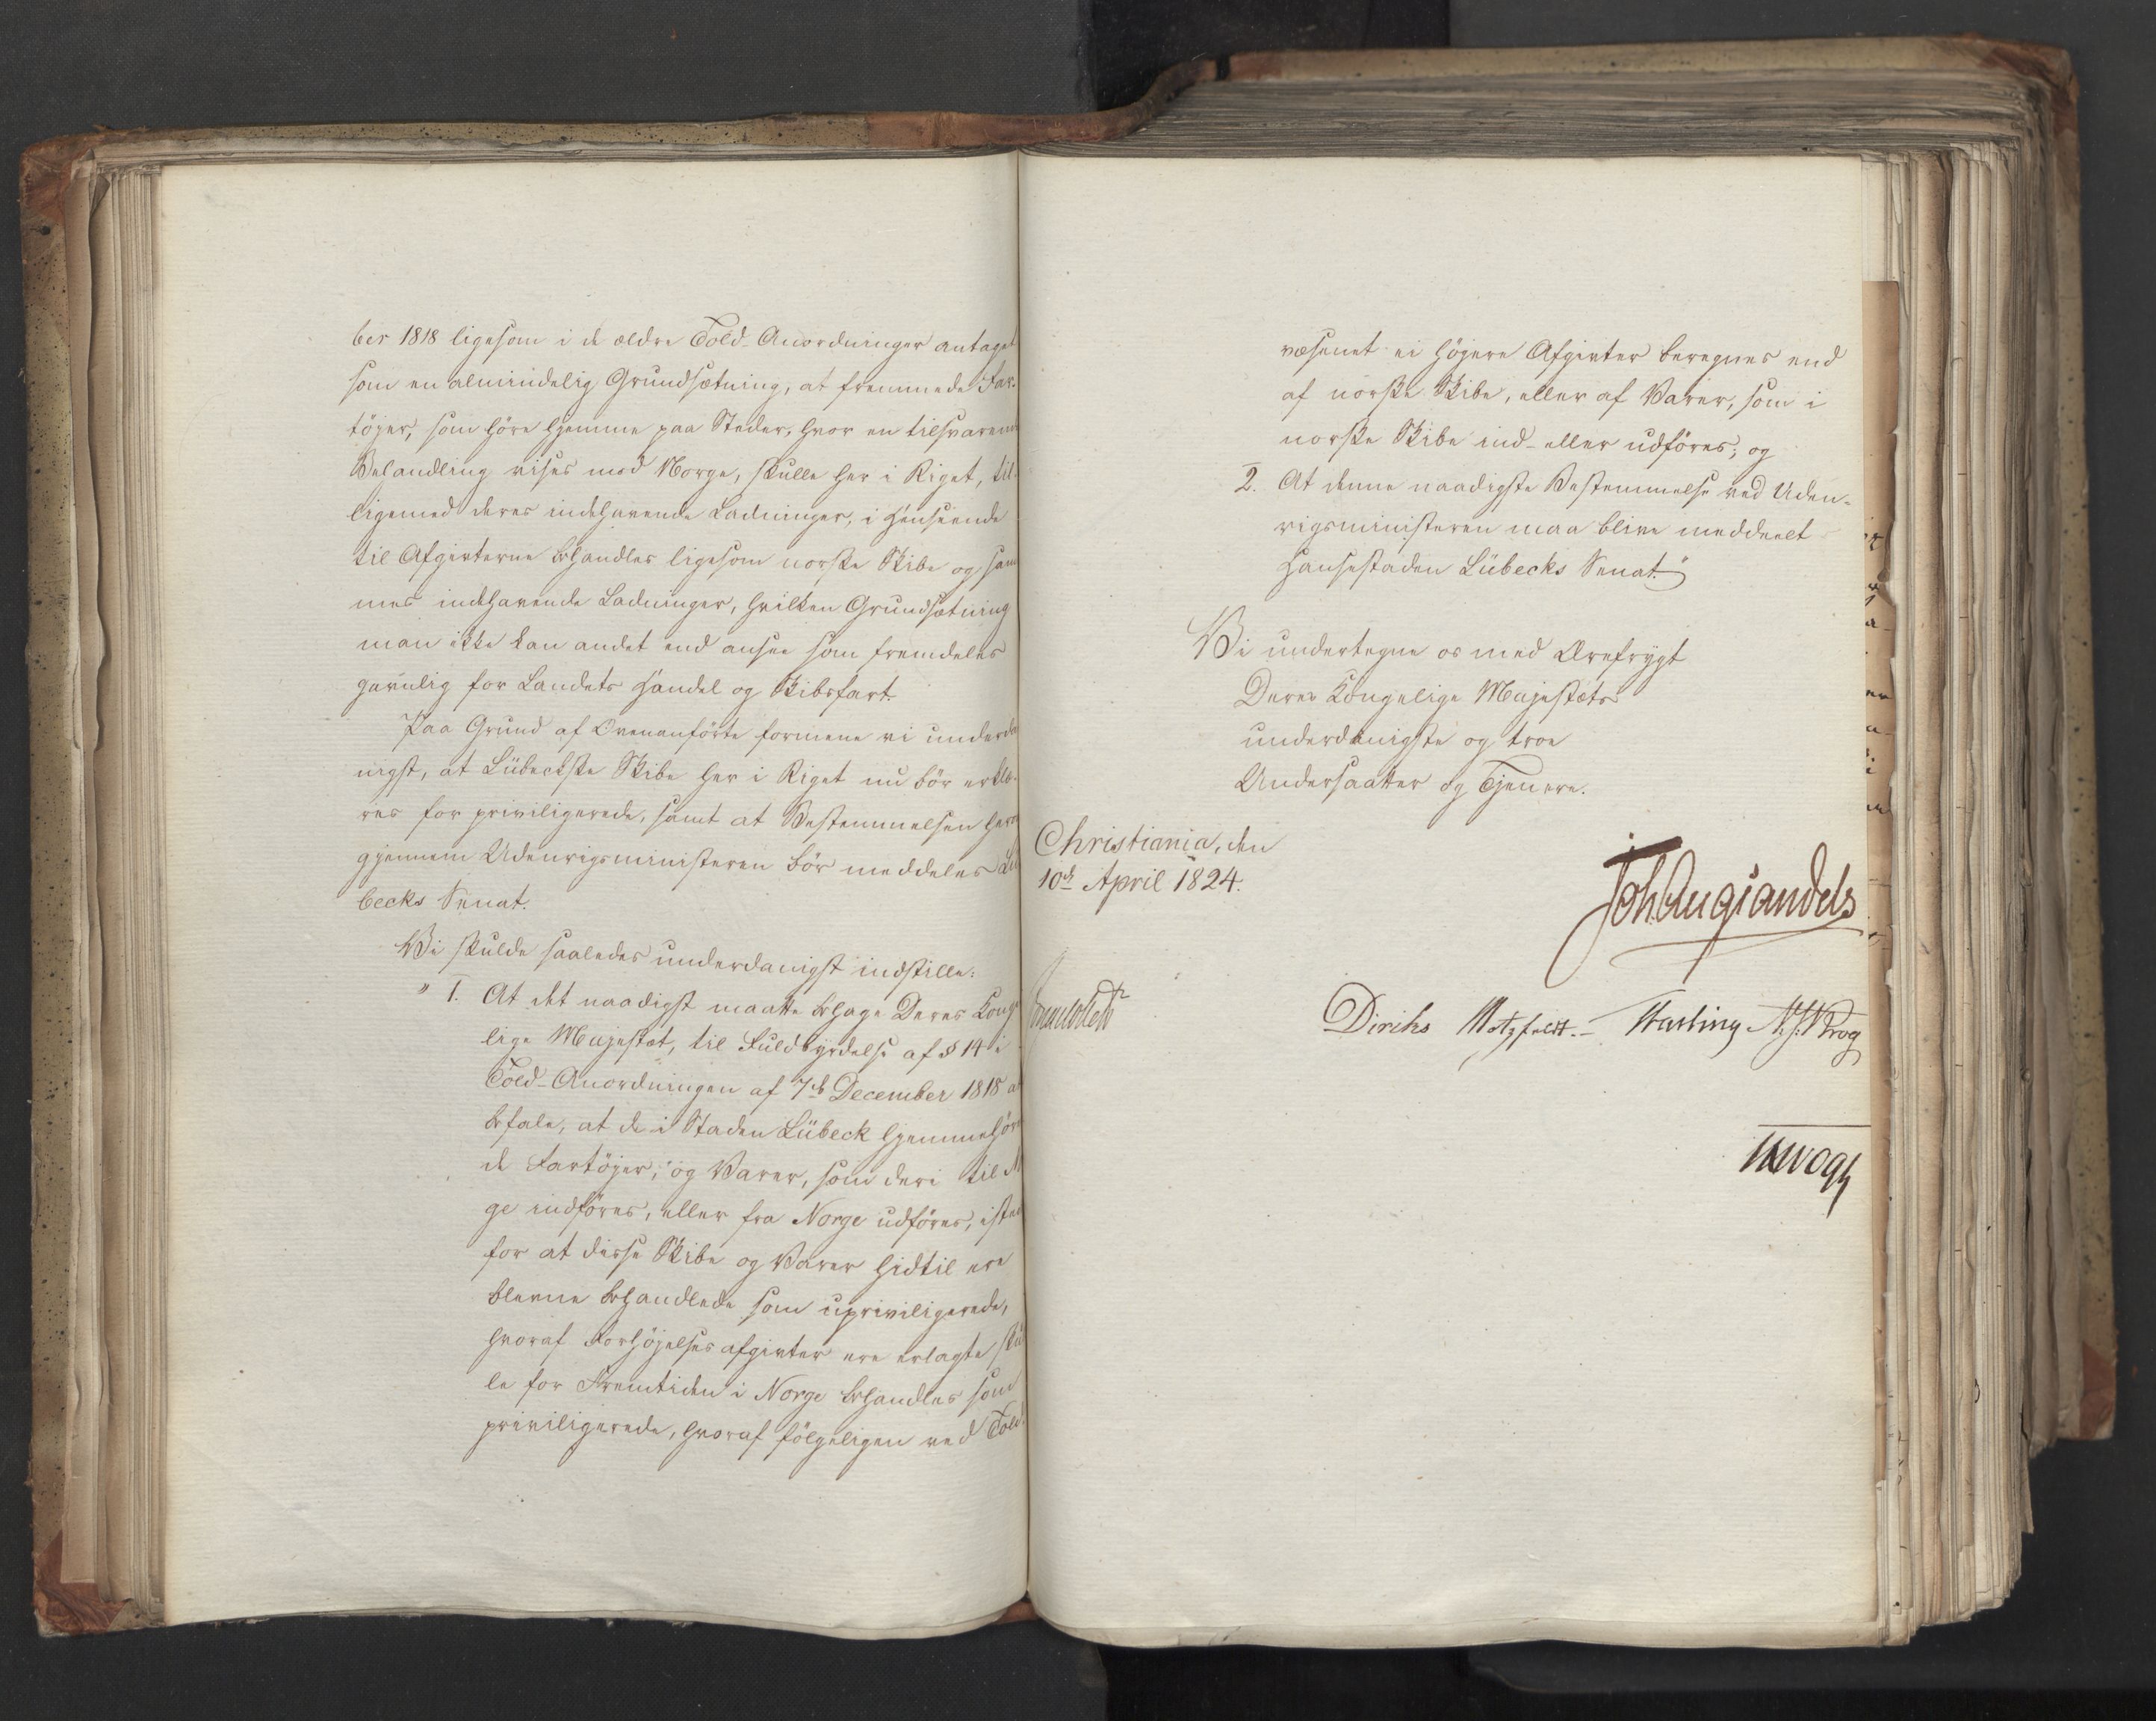 ber 1818 ligesom i de ældre Told-Anordninger antaget
som en almindelig Grundsætning, at fremmede Far-
töjer, som höre hjemme paa Steder, hvor en tilsvarende
Behandling vises mod Norge, skulle her i Riget, til-
ligemed deres indehavende Ladninger, i Henseende
til Afgivterne behandles ligesom norske Skibe og sam
mes indehavende Ladninger, hvilken Grundsætning
man ikke kan andet end ansee som fremdeles
gavnlig for Landets Handel og Skibsfart.
Paa Grund af Ovenanförte formene vi underda
nigst, at Lübeckske Skibe her i Riget nu bör erklæ-
res for priviligerede, samt at Bestemmelsen herom
gjennem Udenrigsministeren bör meddeles Lü
becks Senat.
Vi skulde saaledes underdanigst indstille:
" 1. At det naadigst maatte behage Deres Konge
lige Majestæt, til Fuldbyrdelse af § 14 i
Told-Anordningen af 7de December 1818 at
befale, at de i Staden Lübeck hjemmehören
de Fartöjer, og Varer, som deri til Nor
ge indföres, eller fra Norge udföres, istæd
for at disse Skibe og Varer hidtil ere
blevne behandlede som upriviligerede,
hvoraf Forhöjelsesafgivter ere erlagte, skul
le for Fremtiden i Norge behandles som
priviligerede, hvoraf fölgeligen ved Told-
væsenet ei höjere Afgivter beregnes end
af norske Skibe, eller af Varer, som i
norske Skibe ind- eller udföres; og
2. At denne naadigste Bestemmelse ved Uden-
rigsministeren maa blive meddeelt
Hansestaden Lübecks Senat."
Vi undertegne os med Ærefrygt
Deres Kongelige Majestæts
underdanigste og troe
Undersaatter og Tjenere.
Christiania, den
10de April 1824.
Joh. Aug Sandels
Sommerfeldt
Diriks Motzfeldt.- Fasting N. J. Krog